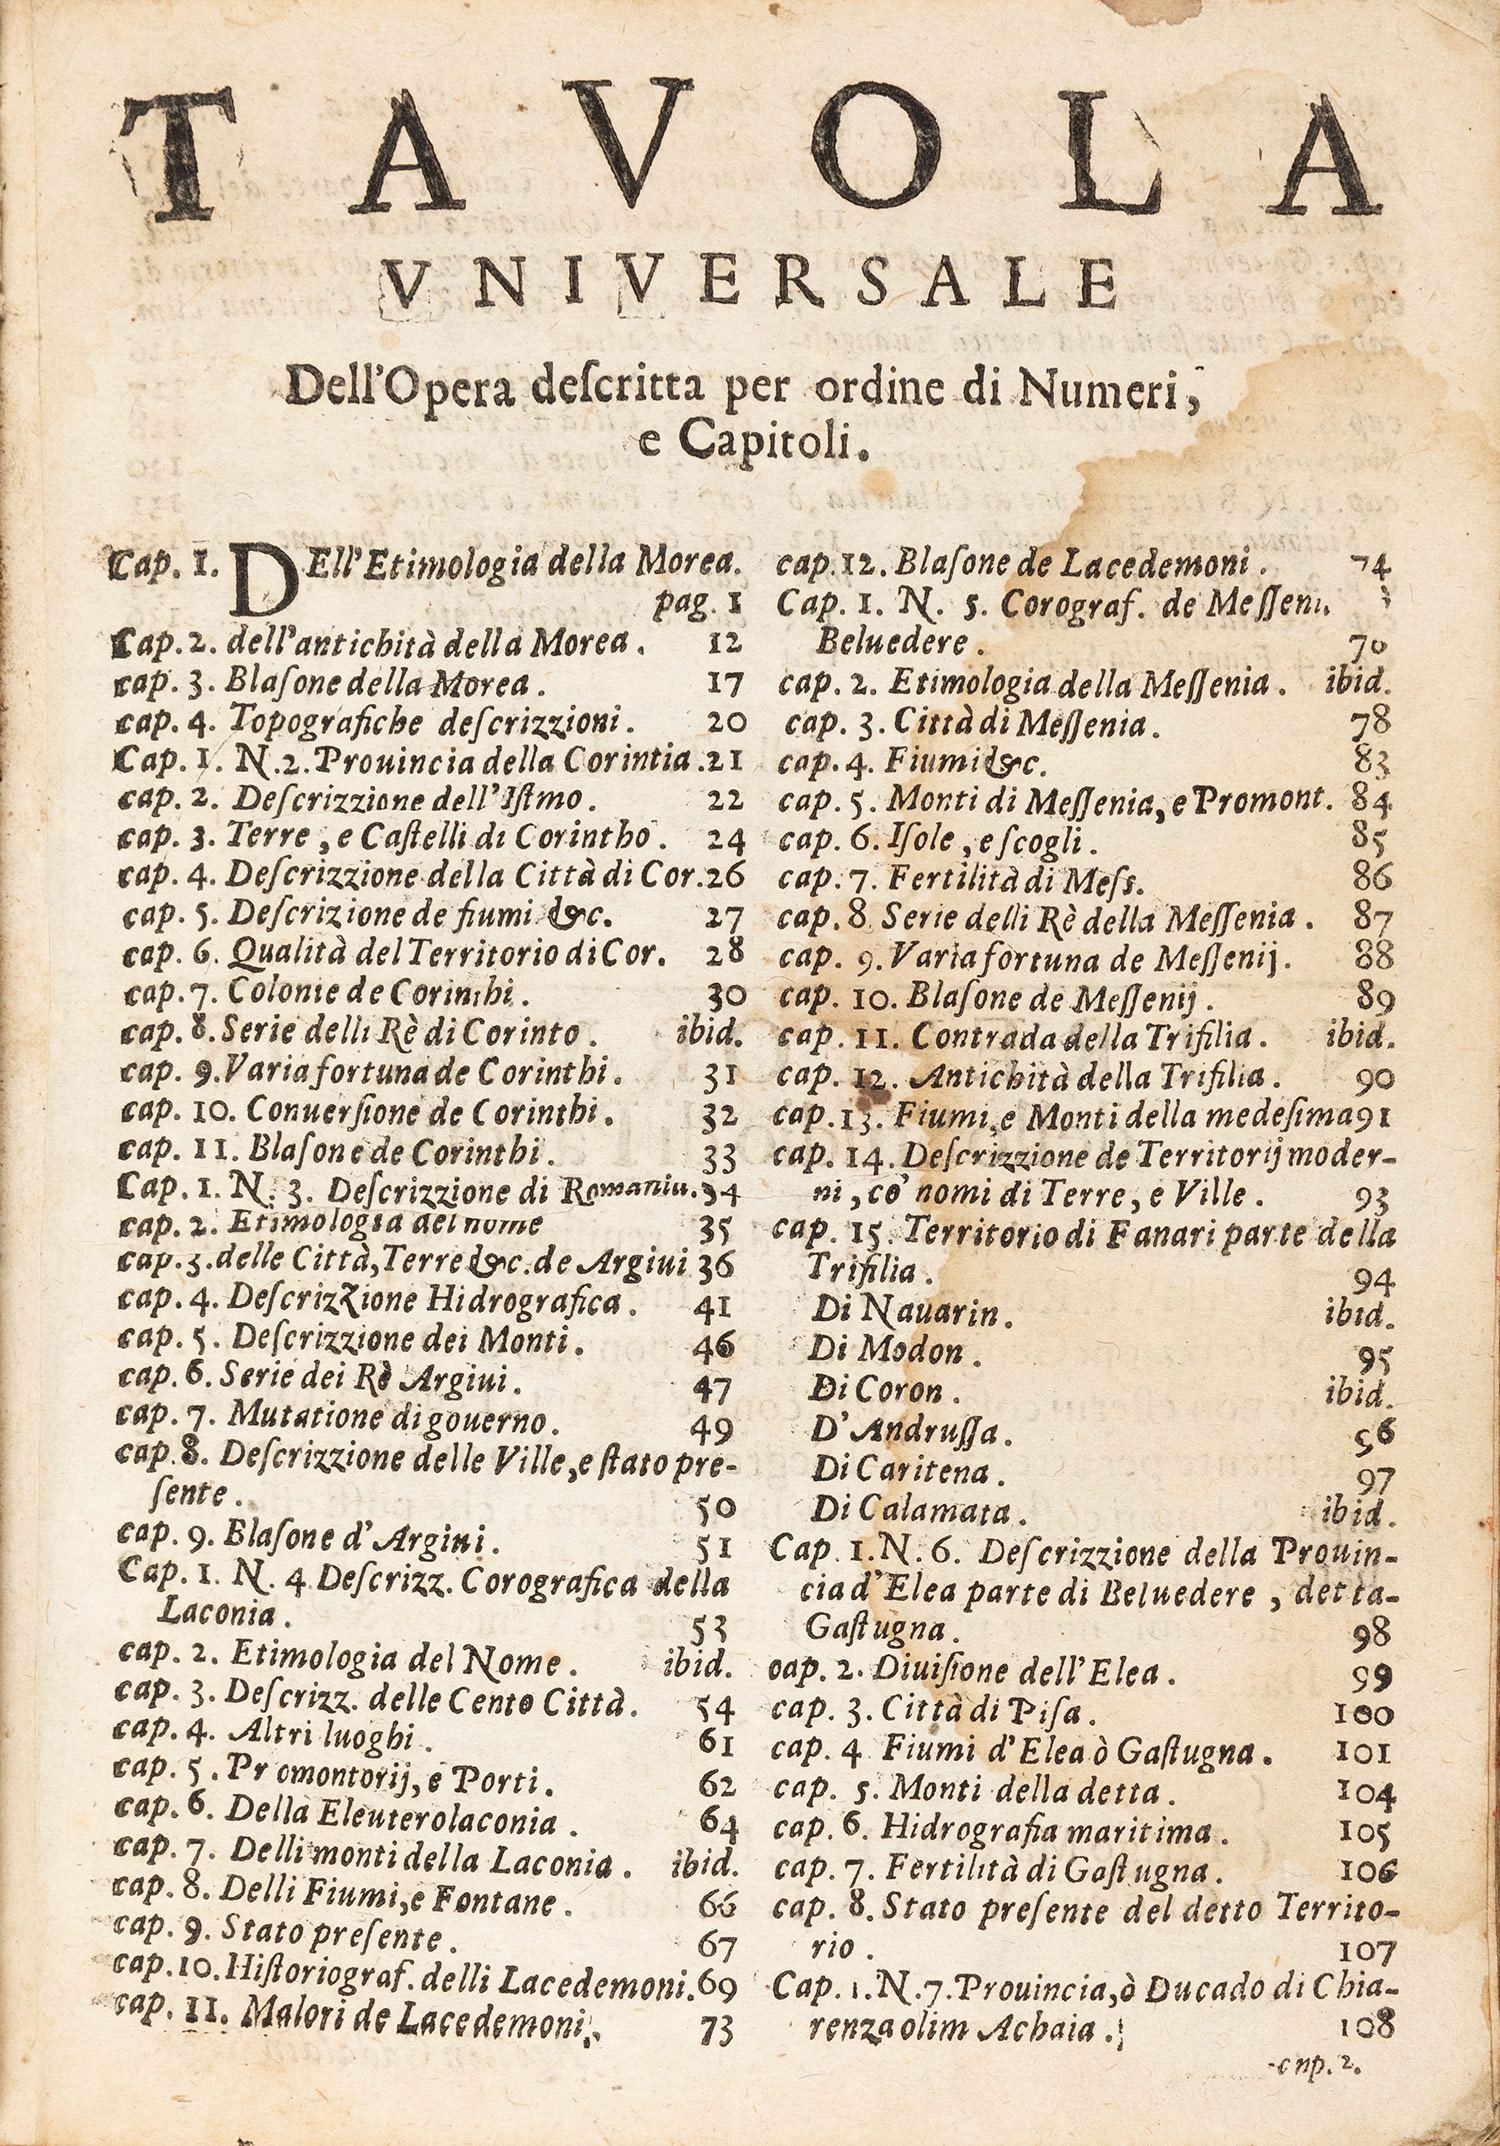 TAVOLA
VNIVERSALE
Dell'Opera deſcritta per ordine di Numeri,
e Capitoli.
Cap. 1. DEll'Etimologia della Morea.
pag. 1
Cap. 2. dell'antichità della Morea. 12
cap. 3. Blaſone della Morea. 17
cap. 4. Topografiche deſcrizzioni. 20
Cap. 1. N. 2. Prouincia della Corintia. 21
cap. 2. Deſcrizzione dell'Iſtmo. 22
cap. 3. Terre, e Caſtelli di Corintho. 24
cap. 4. Deſcrizzione della Città di Cor. 26
cap. 5. Deſcrizione de fiumi &c. 27
cap. 6. Qualità del Territorio di Cor. 28
cap. 7. Colonie de Corinthi. 30
cap. 8. Serie delli Rè di Corinto. ibid.
cap. 9. Varia fortuna de Corinthi. 31
cap. 10. Conuerſione de Corinthi. 32
cap. 11. Blaſone de Corinthi. 33
Cap. 1. N. 3. Deſcrizzione di Romania. 34
cap. 2. Etimologia del nome 35
cap. 3. delle Città, Terre &c. de Argiui 36
cap. 4. DeſcrizZione Hidrografica. 41
cap. 5. Deſcrizzione dei Monti. 46
cap. 6. Serie dei Rè Argiui. 47
cap. 7. Mutatione di gouerno. 49
cap. 8. Deſcrizzione delle Ville, e ſtato pre-
ſente. 50
cap. 9. Blaſone d'Argiui. 51
Cap. 1. N. 4 Deſcrizz. Corografica della
Laconia. 53
cap. 2. Etimologia del Nome. ibid.
cap. 3. Deſcrizz. delle Cento Città. 54
cap. 4. Altri luoghi. 61
cap. 5. Promontorij, e Porti. 62
cap. 6. Della Eleuterolaconia. 64
cap. 7. Delli monti della Laconia. ibid.
cap. 8. Delli Fiumi, e Fontane. 66
cap. 9. Stato preſente. 67
cap. 10. Hiſtoriograf. delli Lacedemoni. 69
cap. 11. Malori de Lacedemoni. 73
cap. 12. Blaſone de Lacedemoni. 74
Cap. 1. N. 5. Corograf. de
Beluedere. 70
cap. 2. Etimologia della Meſſenia. ibid.
cap. 3. Città di Meſſenia. 78
cap. 4. Fiumi &c. 83
cap. 5. Monti di Meſſenia, e Promont. 84
cap. 6. Iſole, e ſcogli. 85
cap. 7. Fertilità di Meſs. 86
cap. 8. Serie delli Rè della Meſſenia. 87
cap. 9. Varia fortuna de Meſſenij. 88
cap. 10. Blaſone de Meſſenij. 89
cap. 11. Contrada della Trifilia. ibid.
cap. 12. Antichità della Trifilia. 90
cap. 13. Fiumi, e Monti della medeſima 91
cap. 14. Deſcrizzione de Territorij moder-
ni, co' nomi di Terre, e Ville. 93
cap. 15. Territorio di Fanari parte della
Trifilia. 94
Di Nauarin. ibid.
Di Modon. 95
Di Coron. ibid.
D'Andruſſa. 96
Di Caritena. 97
Di Calamata. ibid.
Cap. 1. N. 6. Deſcrizzione della Prouin-
cia d'Elea parte di Beluedere, detta-
Gaſtugna. 98
cap. 2. Diuiſione dell'Elea. 99
cap. 3. Città di Piſa. 100
cap. 4 Fiumi d'Elea ò Gaſtugna. 101
cap. 5. Monti della detta. 104
cap. 6. Hidrografia maritima. 105
cap. 7. Fertilità di Gaſtugna. 106
cap. 8. Stato preſente del detto Territo-
rio. 107
Cap. 1. N. 7. Prouincia, ò Ducado di Chia-
renza olim Achaia. 108
cap. 2.